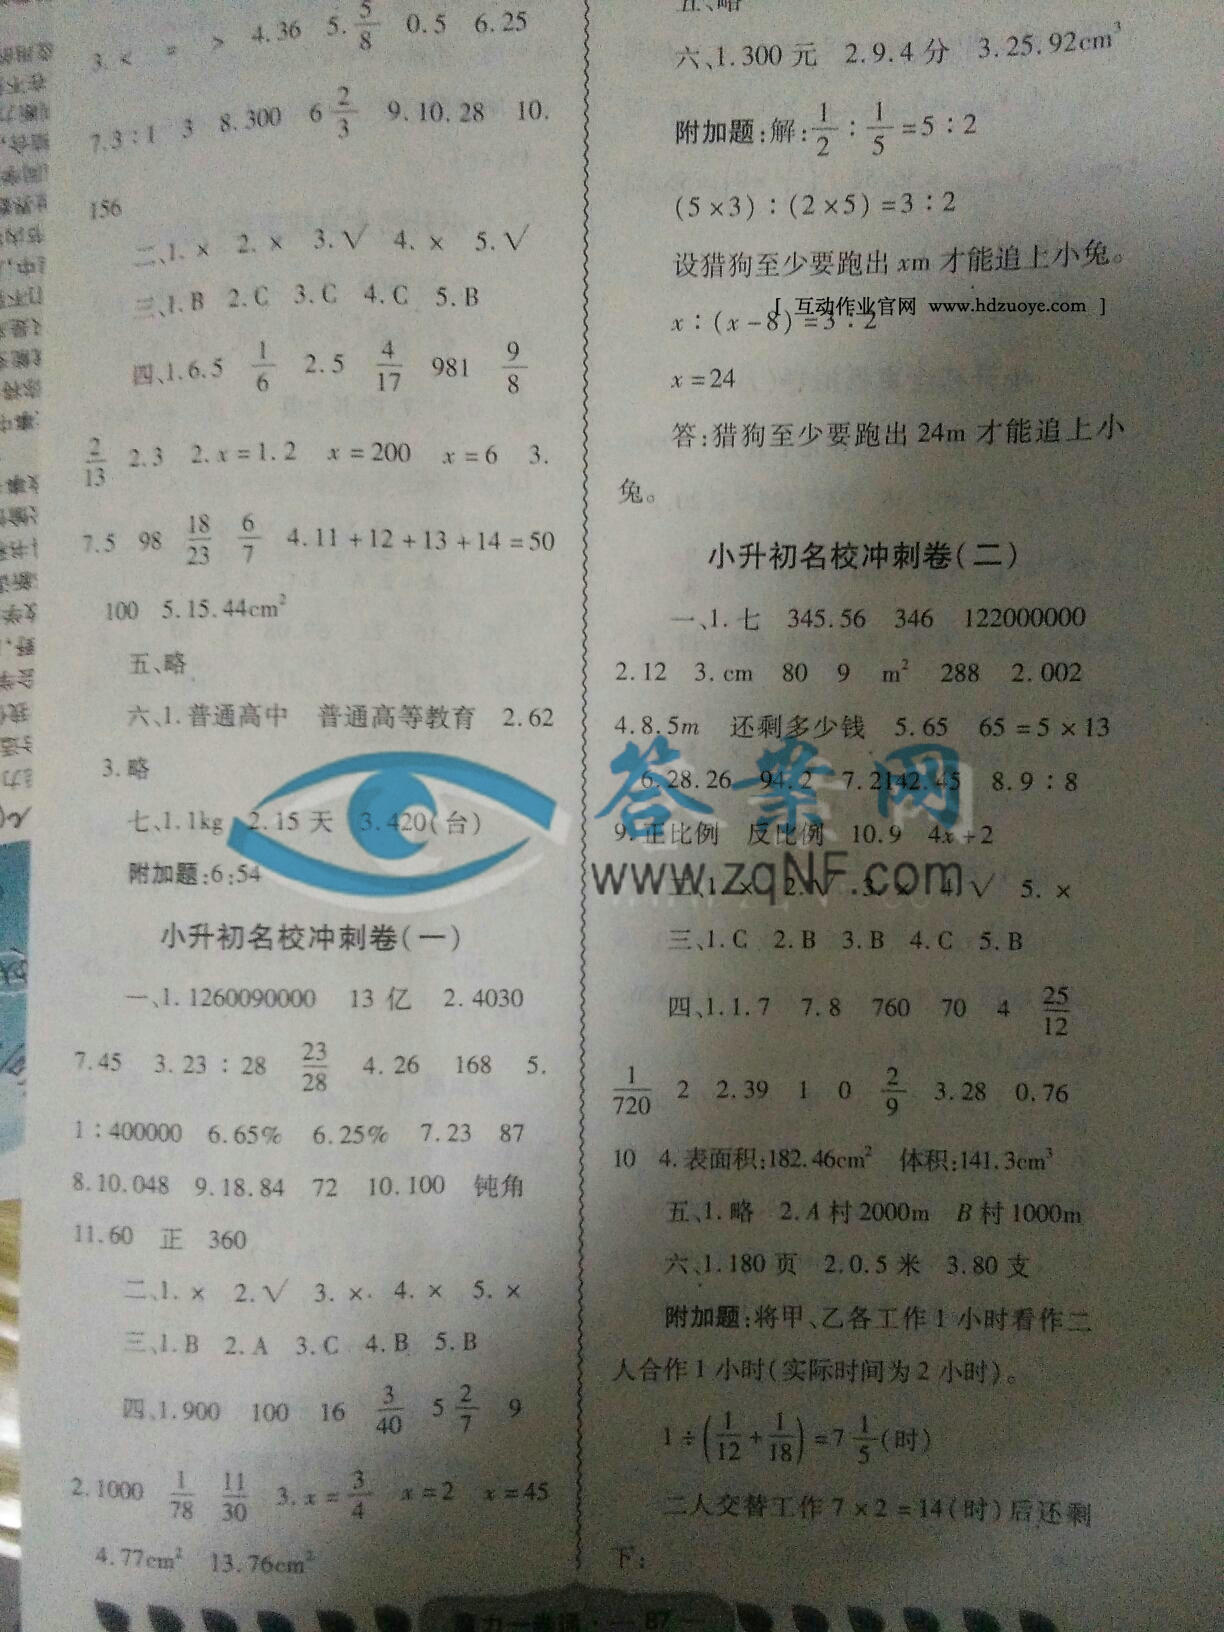 3.< = > 4.36 5.5/8 0.5 6.25
7.3∶1 3 8.300 6 2/3 9.10.28 10.
156
二、1.× 2.× 3.√ 4.× 5.√
三、1.B 2.C 3.C 4.C 5.B
四、1.6.5 1/6 2.5 4/17 981 9/8
2/13 2.3 2.x=1.2 x=200 x=6 3.
7.5 98 18/23 6/7 4.11+12+13+14=50
100 5.15.44cm²
五、略
六、1.普通高中 普通高等教育 2.62
3.略
七、1.1kg 2.15天 3.420(台)
附加题:6:54
小升初名校冲刺卷(一)
一、1.1260090000 13亿 2.4030
7.45 3.23∶28 23/28 4.26 168 5.
1∶400000 6.65% 6.25% 7.23 87
8.10.048 9.18.84 72 10.100 钝角
11.60 正 360
二、1.× 2.√ 3.× 4.× 5.×
三、1.B 2.A 3.C 4.B 5.B
四、1.900 100 16 3/40 5 2/7 9
2.1000 1/78 11/30 3.x=3/4 x=2 x=45
4.77cm² 13.76cm²
五、略
六、1.300元 2.9.4分 3.25.92cm³
附加题:解:1/2∶1/5=5∶2
(5×3)∶(2×5)=3∶2
设猎狗至少要跑出xm才能追上小兔。
[ 互动作业官网 www.hdzuoye.com ]
x∶(x-8)=3∶2
x=24
答:猎狗至少要跑出24m才能追上小
兔。
小升初名校冲刺卷(二)
一、1.七 345.56 346 122000000
2.12 3.cm 80 9 m² 288 2.002
4.8.5m 还剩多少钱 5.65 65=5×13
6.28.26 94.2 7.2142.45 8.9∶8
9.正比例 反比例 10.9 4x+2
答案网
www.zqNF.com
二、1.× 2.√ 3.× 4.√ 5.×
三、1.C 2.B 3.B 4.C 5.B
四、1.1.7 7.8 760 70 4 25/12
1/720 2 2.39 1 0 2/9 3.28 0.76
10 4.表面积:182.46cm² 体积:141.3cm³
五、1.略 2.A村2000m B村1000m
六、1.180页 2.0.5米 3.80支
附加题:将甲、乙各工作1小时看作二
人合作1小时(实际时间为2小时)。
1÷(1/12+1/18)=7 1/5(时)
二人交替工作7×2=14(时)后还剩
下:
— 87 —